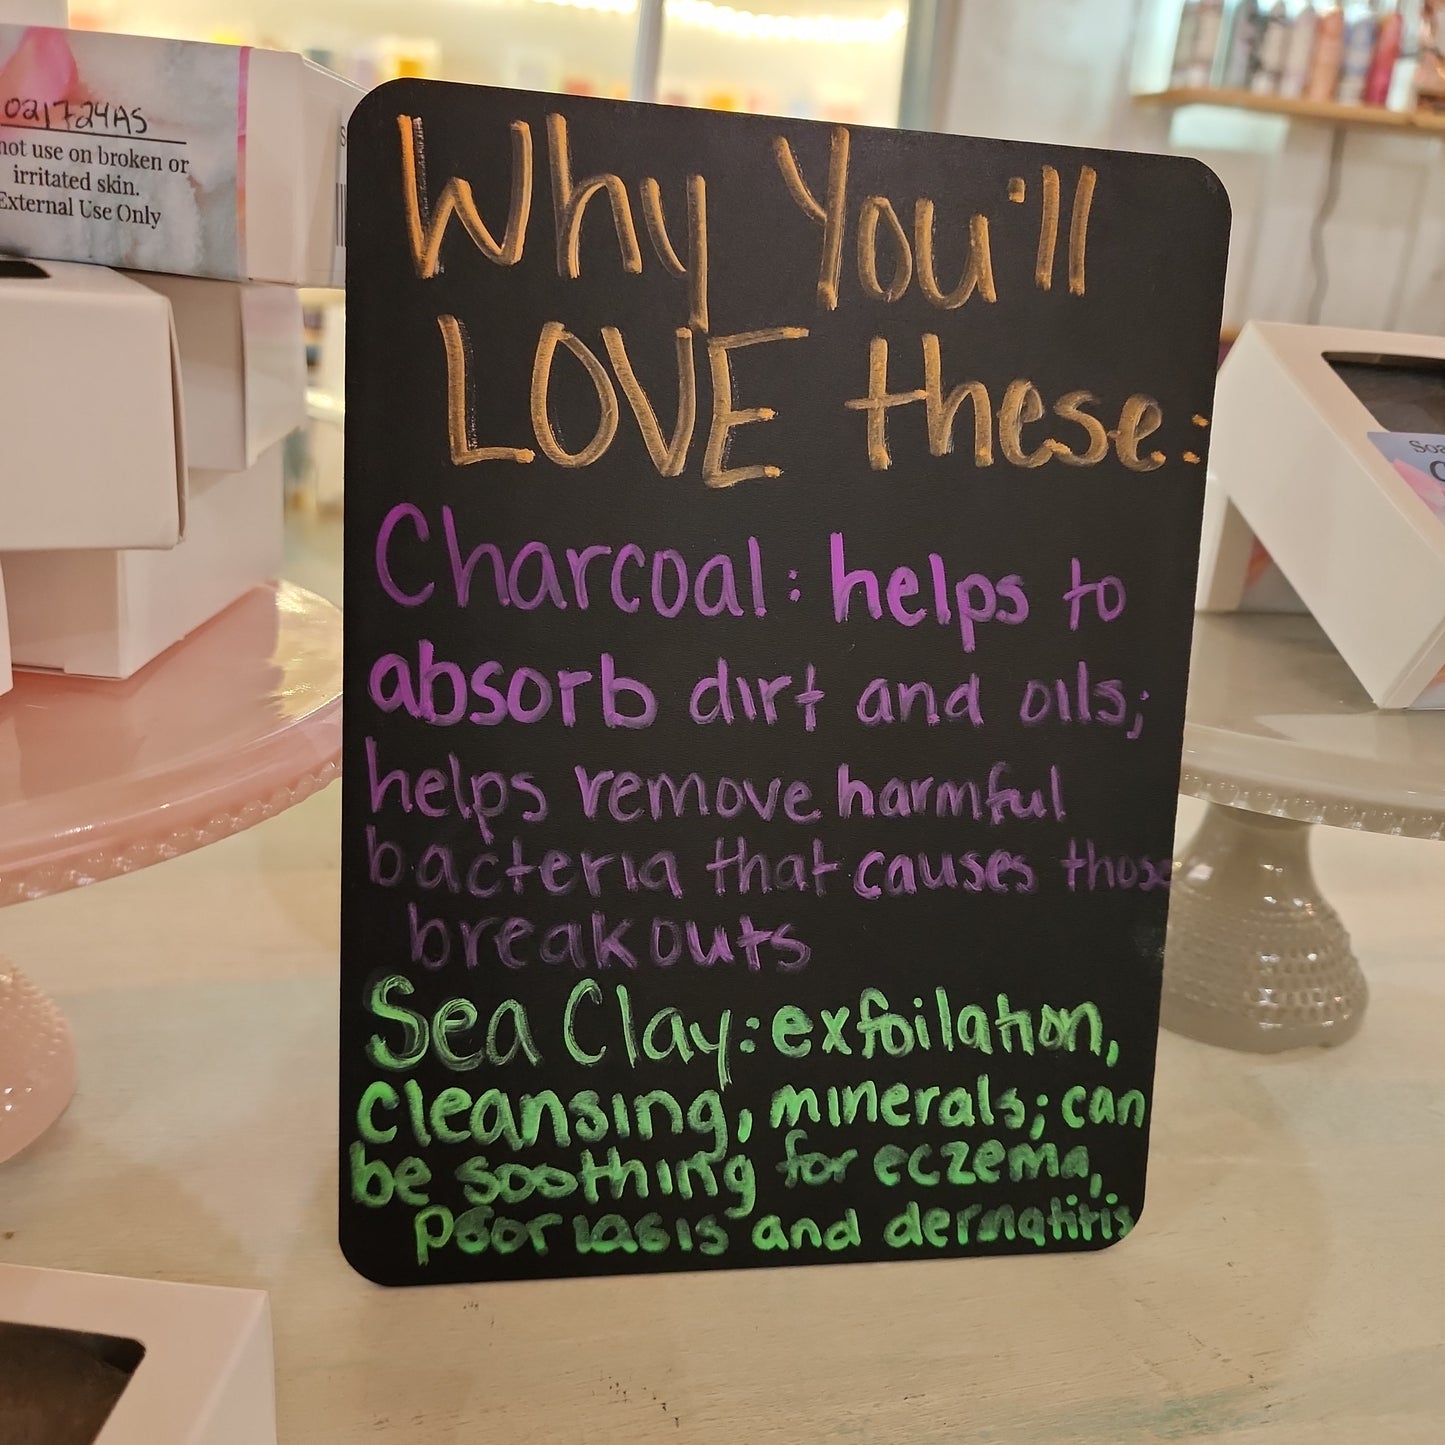 021724AS
not use on broken or
irritated skin.
External Use Only
Why You'll
LOVE these:
Charcoal: helps to
absorb dirt and oils;
helps remove harmful
bacteria that causes those
breakouts
Sea Clay: exfoilation,
cleansing, minerals; can
be soothing for eczema,
psoriasis and dermatitis